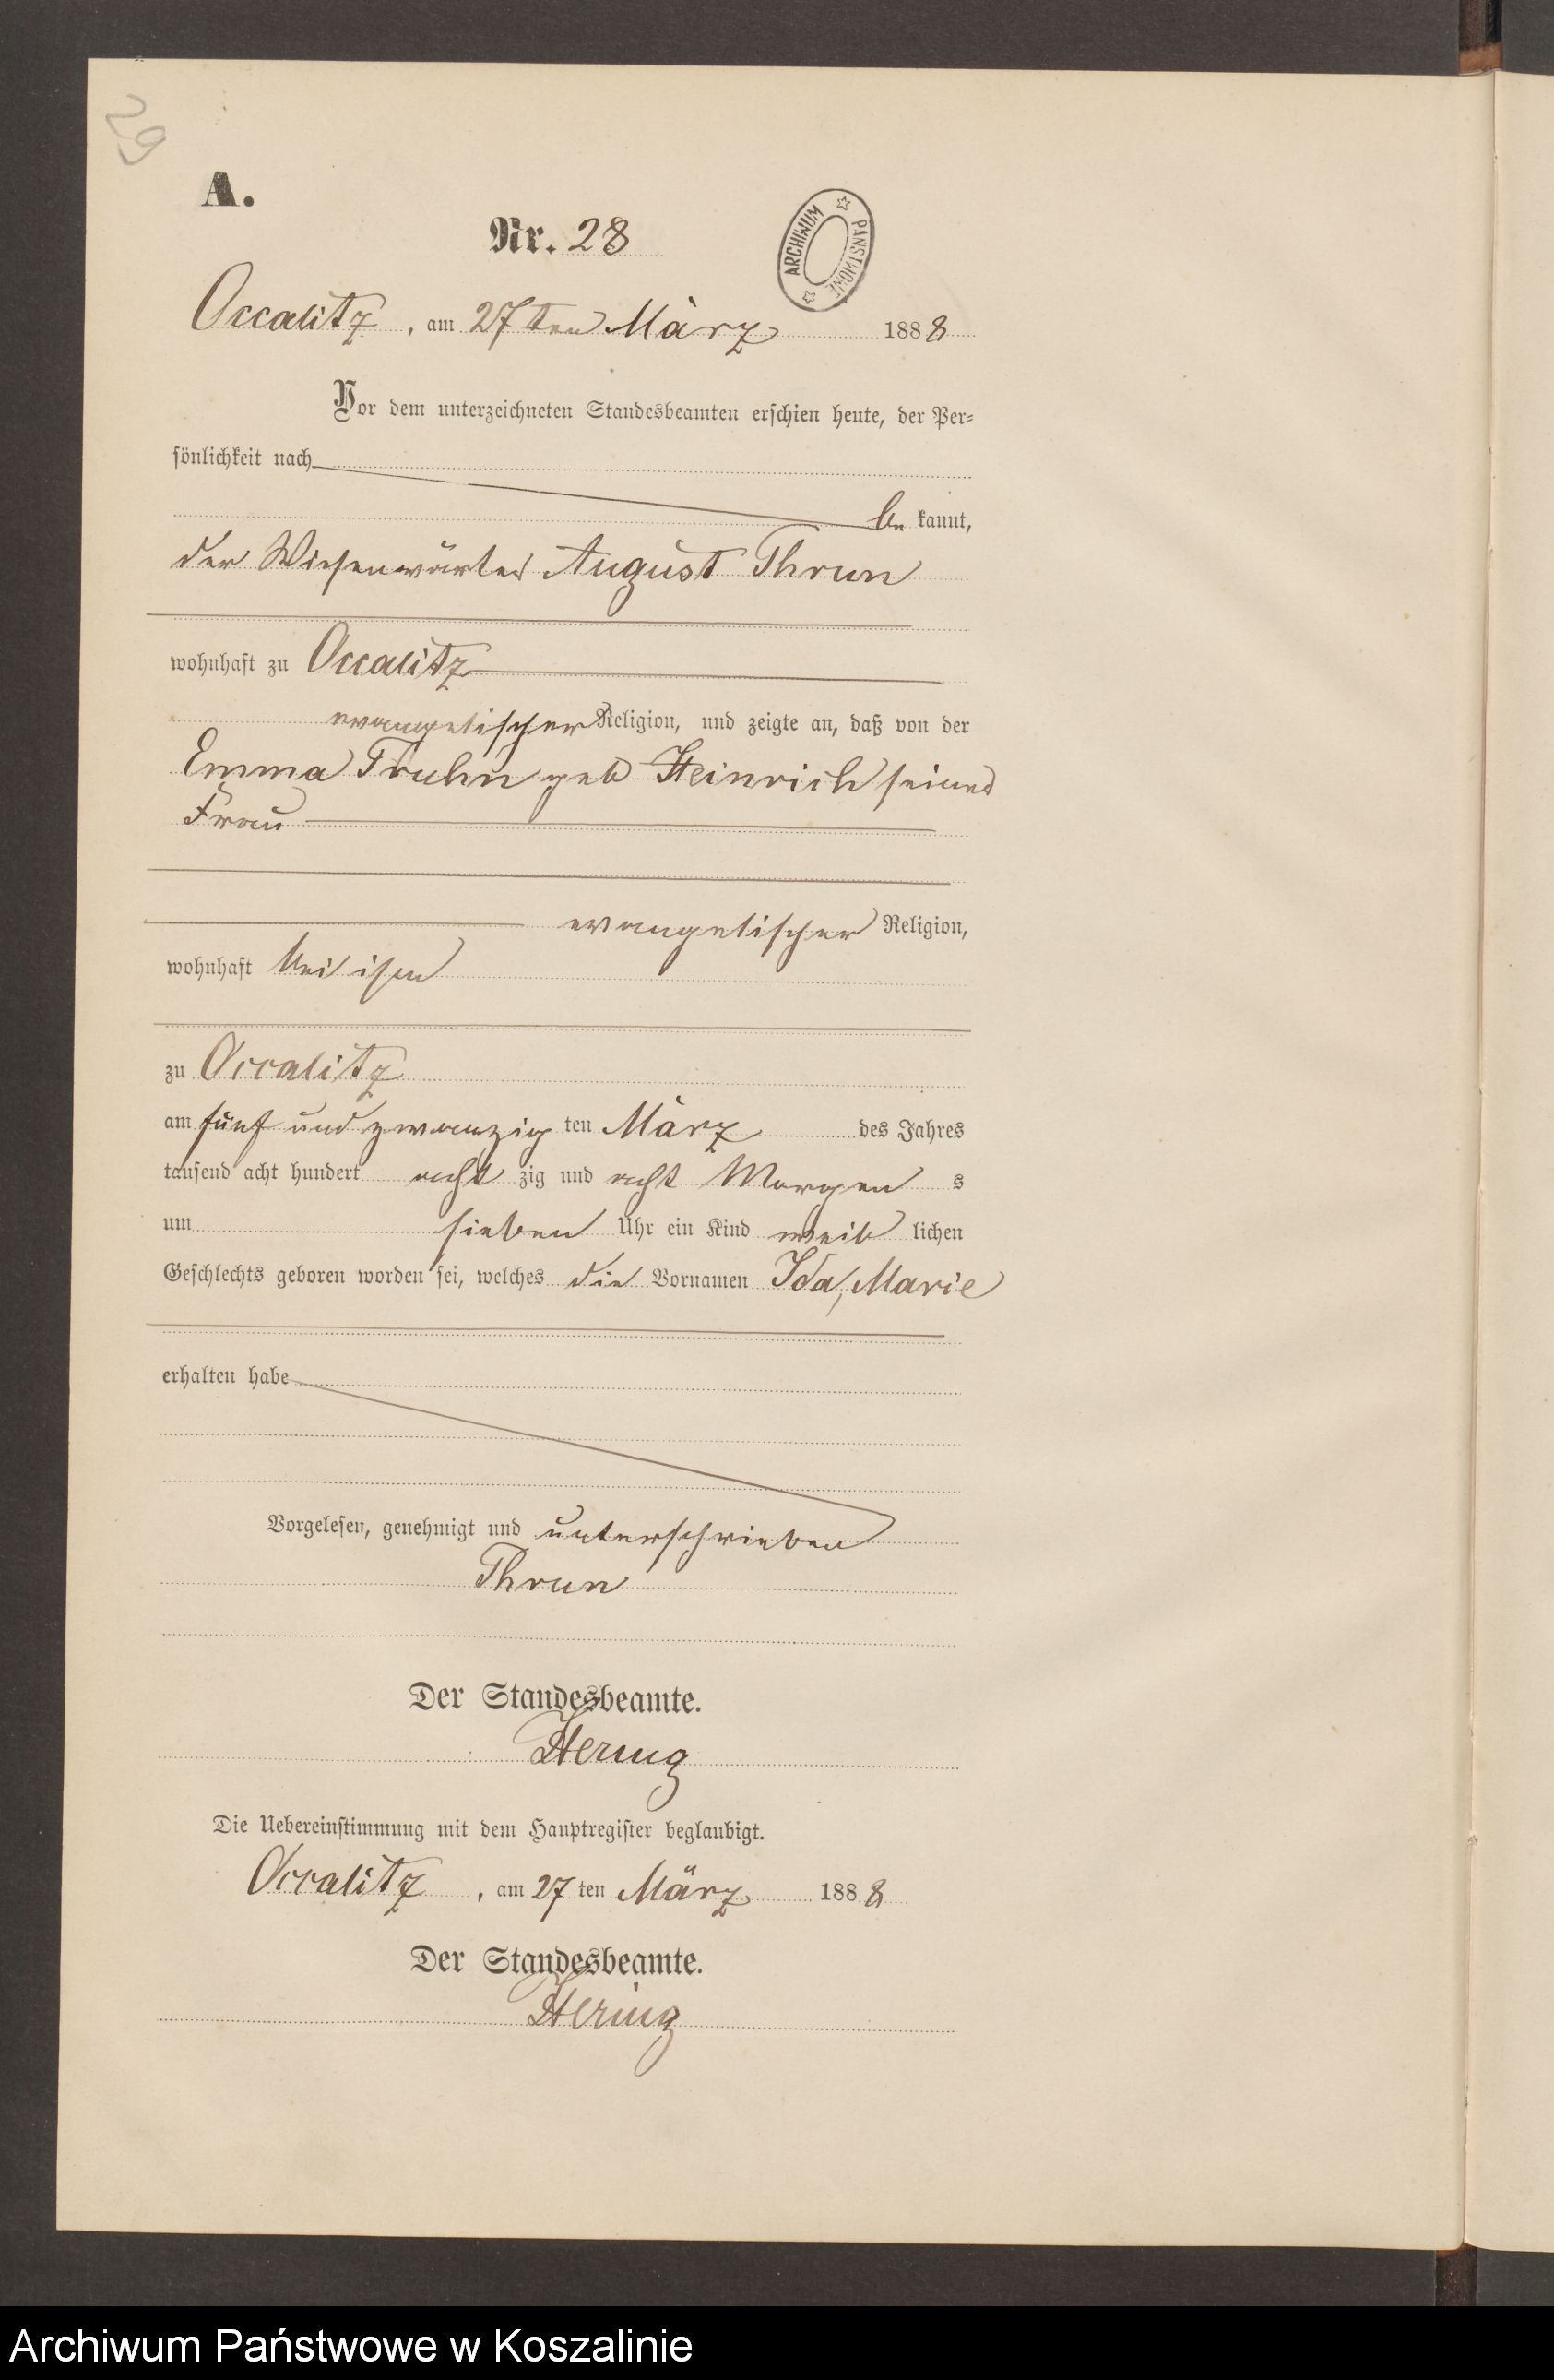 29
A.
Nr. 28
ARCHIWUM PAŃSTWOWE
Occalitz, am 27 ten März 1888
Vor dem unterzeichneten Standesbeamten erschien heute, der Per-
sönlichkeit nach
be kannt,
der Wiesenwärter August Thrun
wohnhaft zu Occalitz
evangelischer Religion, und zeigte an, daß von der
Emma Truhn geb Heinrich seiner
Frau
evangelischer Religion,
wohnhaft bei ihm
zu Occalitz
am fünf und zwanzig ten März des Jahres
tausend acht hundert acht zig und acht Morgen s
um sieben Uhr ein Kind weib lichen
Geschlechts geboren worden sei, welches die Vornamen Ida, Marie
erhalten habe
Vorgelesen, genehmigt und unterschrieben
Thrun
Der Standesbeamte.
Hering
Die Uebereinstimmung mit dem Hauptregister beglaubigt.
Occalitz, am 27 ten März 1888
Der Standesbeamte.
Hering
Archiwum Państwowe w Koszalinie